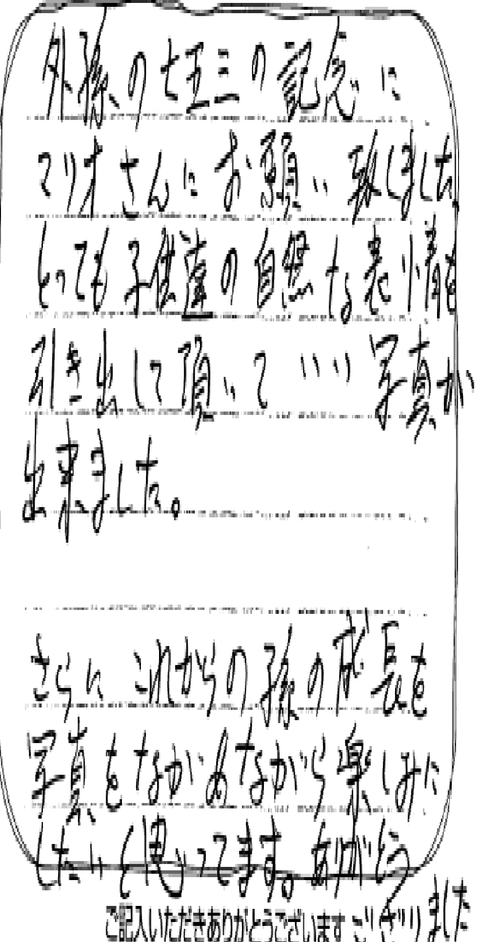 外孫の七五三の記念に
マリオさんにお願い致しました
とっても子供達の自然な表情を
引き出して頂いて いい写真が
出来ました。
さらに これからの孫の成長を
写真をながめながら楽しみに
したいと思ってます。ありがとう
ございました
ご記入いただきありがとうございます